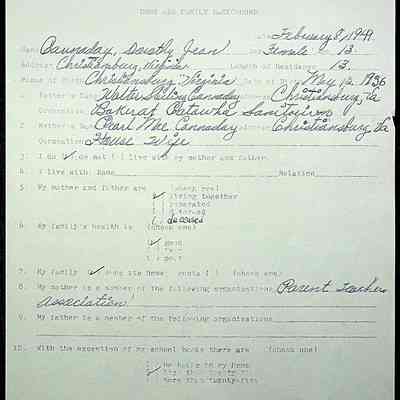 HOME AND FAMILY BACKGROUND
Date February 8, 1949.
Name Cannaday, Dorothy Jean Sex Female 13.
Address Christiansburg, Virginia Length of Residence 13.
Place of Birth Christiansburg, Virginia Date of Birth May 12, 1936
1. Father's Name Walter Cannaday Address Christiansburg, Va
Occupation Catawba
2. Mother's Name Pearl Mae Cannaday Address Christiansburg, Va
Occupation House wife
3. I do (✓) do not ( ) live with my mother and father.
4. I live with: Name Relation
5. My mother and father are (check one)
(✓) living together
( ) separated
( ) divorced
( ) deceased
6. My family's health is (check one)
(✓) good
( ) fair
( ) poor
7. My family (✓) owns its home rents ( ) (check one)
8. My mother is a member of the following organizations Parent Teachers
Association
9. My father is a member of the following organizations
10. With the exception of my school books there are (check one)
( ) No books in my home
( ) less than twenty-five
( ) more than twenty-five